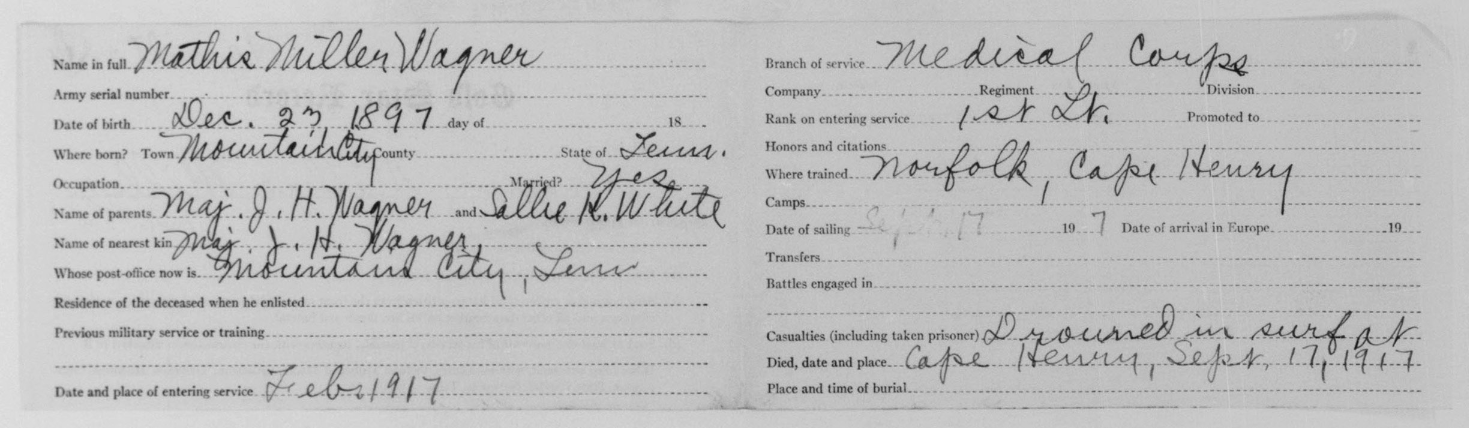 Name in full Mathis Miller Wagner
Army serial number
Date of birth Dec. 23 1897 day of 18
Where born? Town Mountain City County State of Tenn.
Occupation Married? Yes
Name of parents Maj. J. H. Wagner and Sallie K. White
Name of nearest kin Maj. J. H. Wagner,
Whose post-office now is Mountain City, Tenn
Residence of the deceased when he enlisted
Previous military service or training
Date and place of entering service Feb 1917
Branch of service Medical Corps
Company Regiment Division
Rank on entering service 1st Lt. Promoted to
Honors and citations
Where trained Norfolk, Cape Henry
Camps
Date of sailing Sept. 17 19 7 Date of arrival in Europe 19
Transfers
Battles engaged in
Casualties (including taken prisoner) Drowned in surf at
Died, date and place Cape Henry, Sept. 17, 1917
Place and time of burial